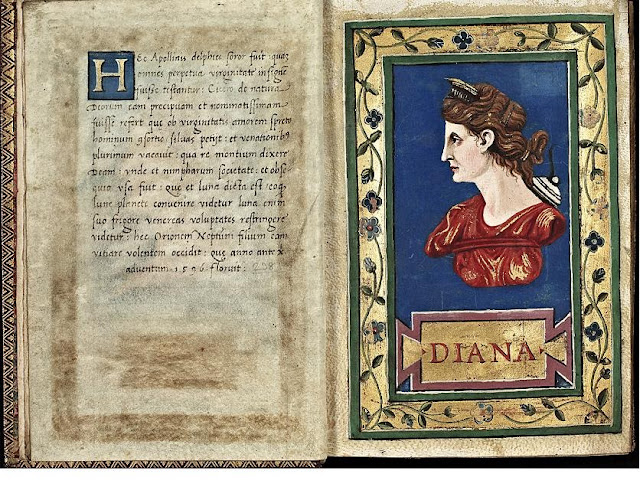 HEc Apollinis delphici soror fuit quaz
omnes perpetua virginitate insigne
fuisse testantur: Cicero de natura
Deorum eam precipuam et nominatissimam
fuisse refert que ob virginitatis amorem spreto
hominum gsortio siluas petijt: et venationibꝯ
plurimum vacavit: qua re montium dixere
Deam: vnde et nimpharum societate: et obse
quio vsa fuit: que et luna dicta est eoq
lune planete convenire videtur luna enim
suo frigore venereas voluptates restringere
videtur: hec Orionem Neptuni filium eam
vitiare volentem occidit: que anno ante x̄
adventum · 1 5 9 6 floruit:
DIANA